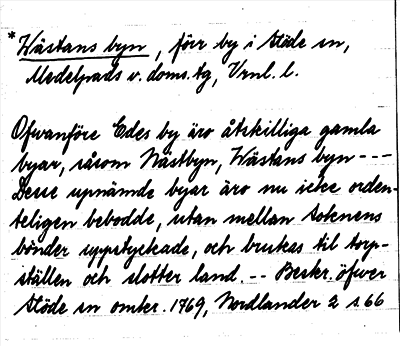 *Wästans byn, förr by i Stöde sn,
Medelpads v. doms. tg, Vrnl. l.
Ofwanföre Edes by äro åtskilliga gamla
byar, såsom Nästbyn, Wästans byn ---
Desse upnämde byar äro nu icke orden-
teligen bebodde, utan mellan soknens
bönder uppstyckade, och brukas til torp-
ställen och slotter land. -- Beskr. öfwer
Stöde sn omkr. 1769, Nordlander 2 s. 66